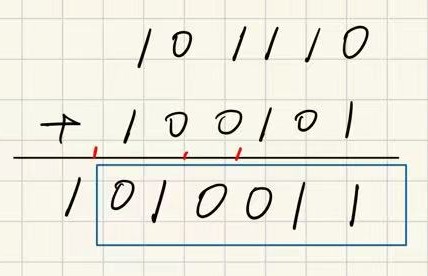 101110
+ 100101
1010011